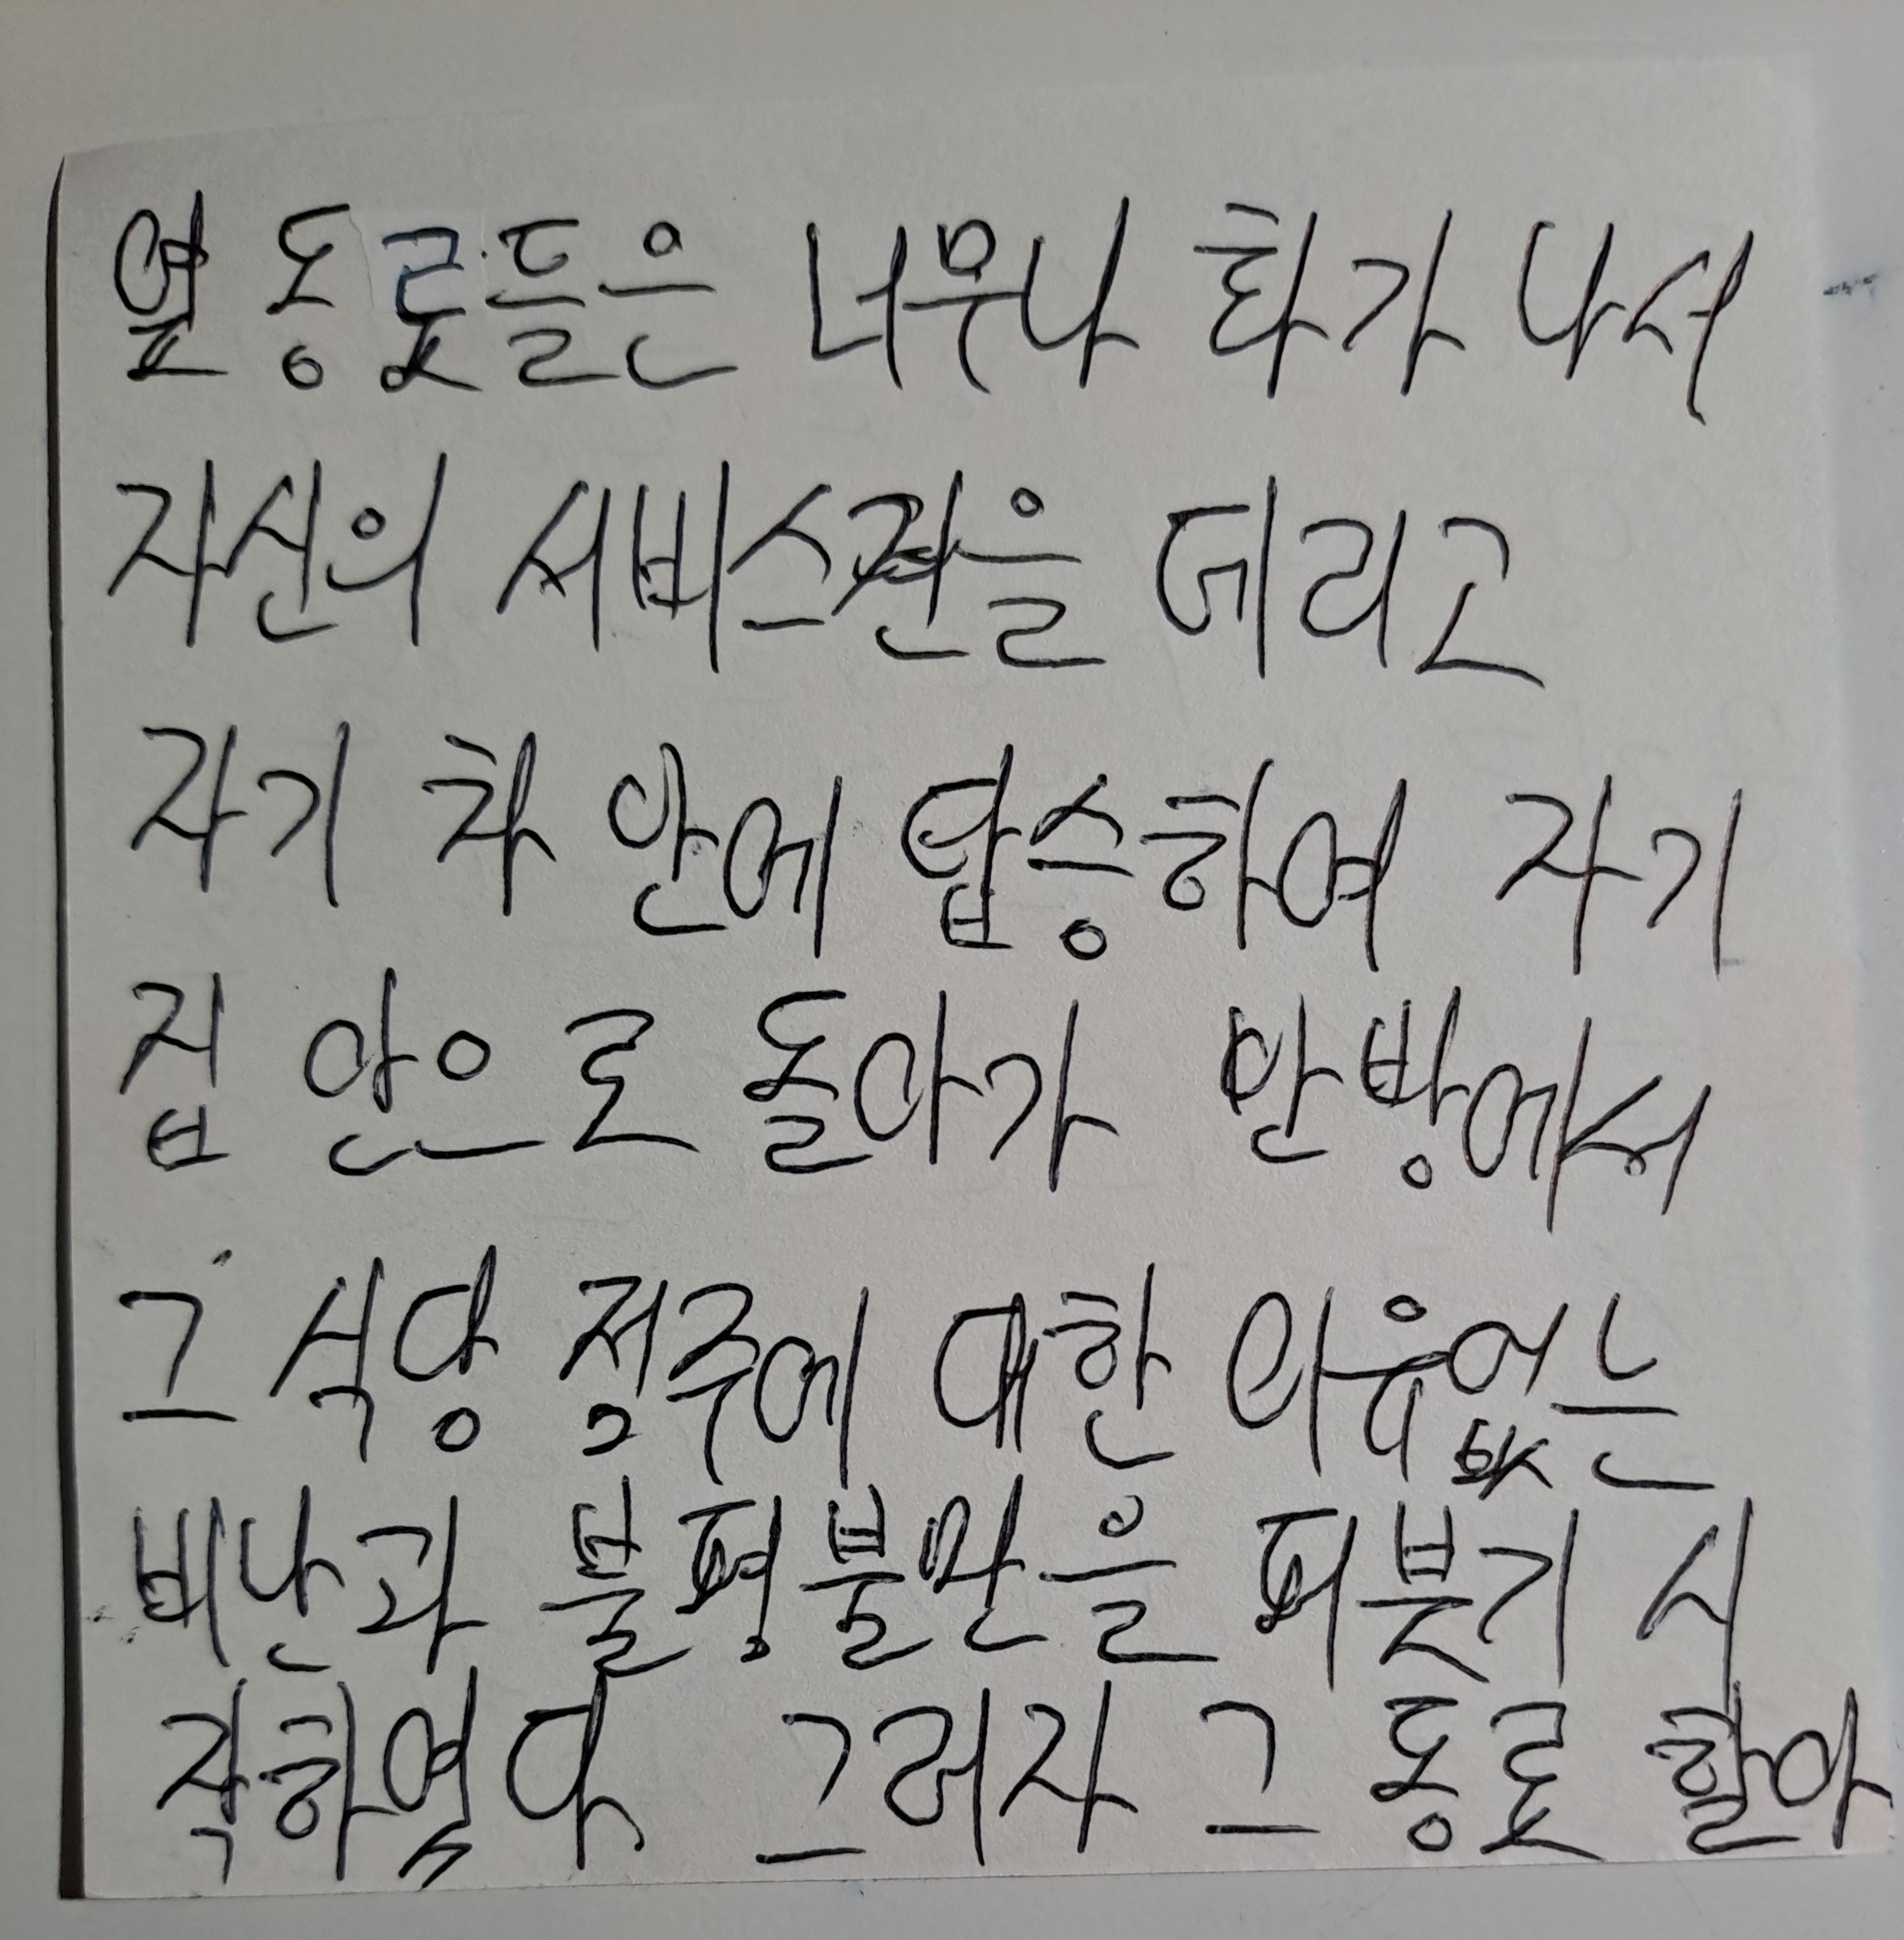 옆 동료들은 너무나 화가 나서
자신의 서비스견을 데리고
자기 차 안에 탑승하여 자기
집 안으로 돌아가 안방에서
그 식당 점주에 대한 이유없는
비난과 불평불만을 퍼붓기 시
작하였다. 그러자 그 동료 할아